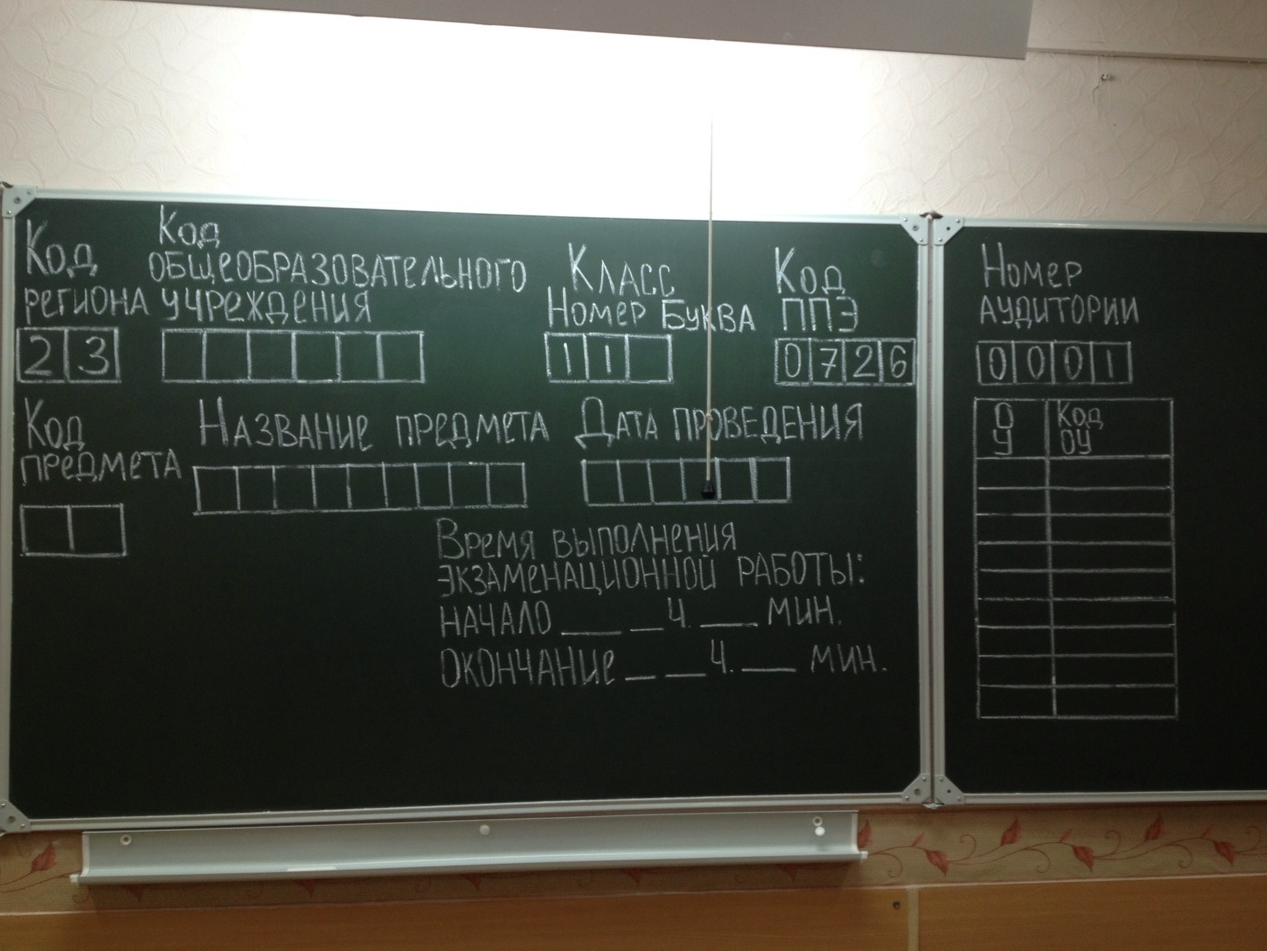 Код
региона
23
Код
общеобразовательного
учреждения
Класс
Номер Буква
11
Код
ППЭ
0726
Код
предмета
Название предмета
Дата проведения
Время выполнения
экзаменационной работы:
начало ___ __ч. ___ мин.
окончание __ ___ч. ___ мин.
Номер
аудитории
0001
О Код
У ОУ